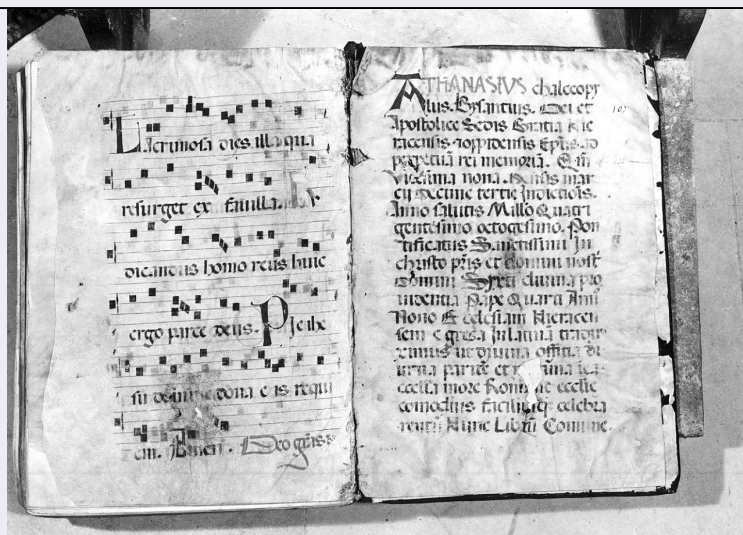 Lacrimosa dies illa qua
resurget ex favilla.
dicandus homo reus huic
ergo parce deus. Pie ihe
su domine dona eis requi
em. Amen. Deo grãs
ATHANASIVS chalceopi
lus. Bysantius. Dei et
Apostolice Sedis Gratia hie
racensis oppidensis Epũs. ad
perpetuã rei memoriã. Cũ
vicesima nona. Mensis mar
cij Decime tertie Indictiõis.
Anno salutis Millõ Quatri
gentesimo octogesimo. Pon
tificatus Sanctissimi In
christo pris et domini nostr
Domini Sixti divina pro
videntia Pape Quarti Anno
Nono Ecclesiam Hieracen
sem e greca In latinã tradux
eximus ut divina officia di
urna pariter et
ecclesia more Romane ecclie
comodius faciliusq celebra
rentur Hunc Librũ Comune.
107